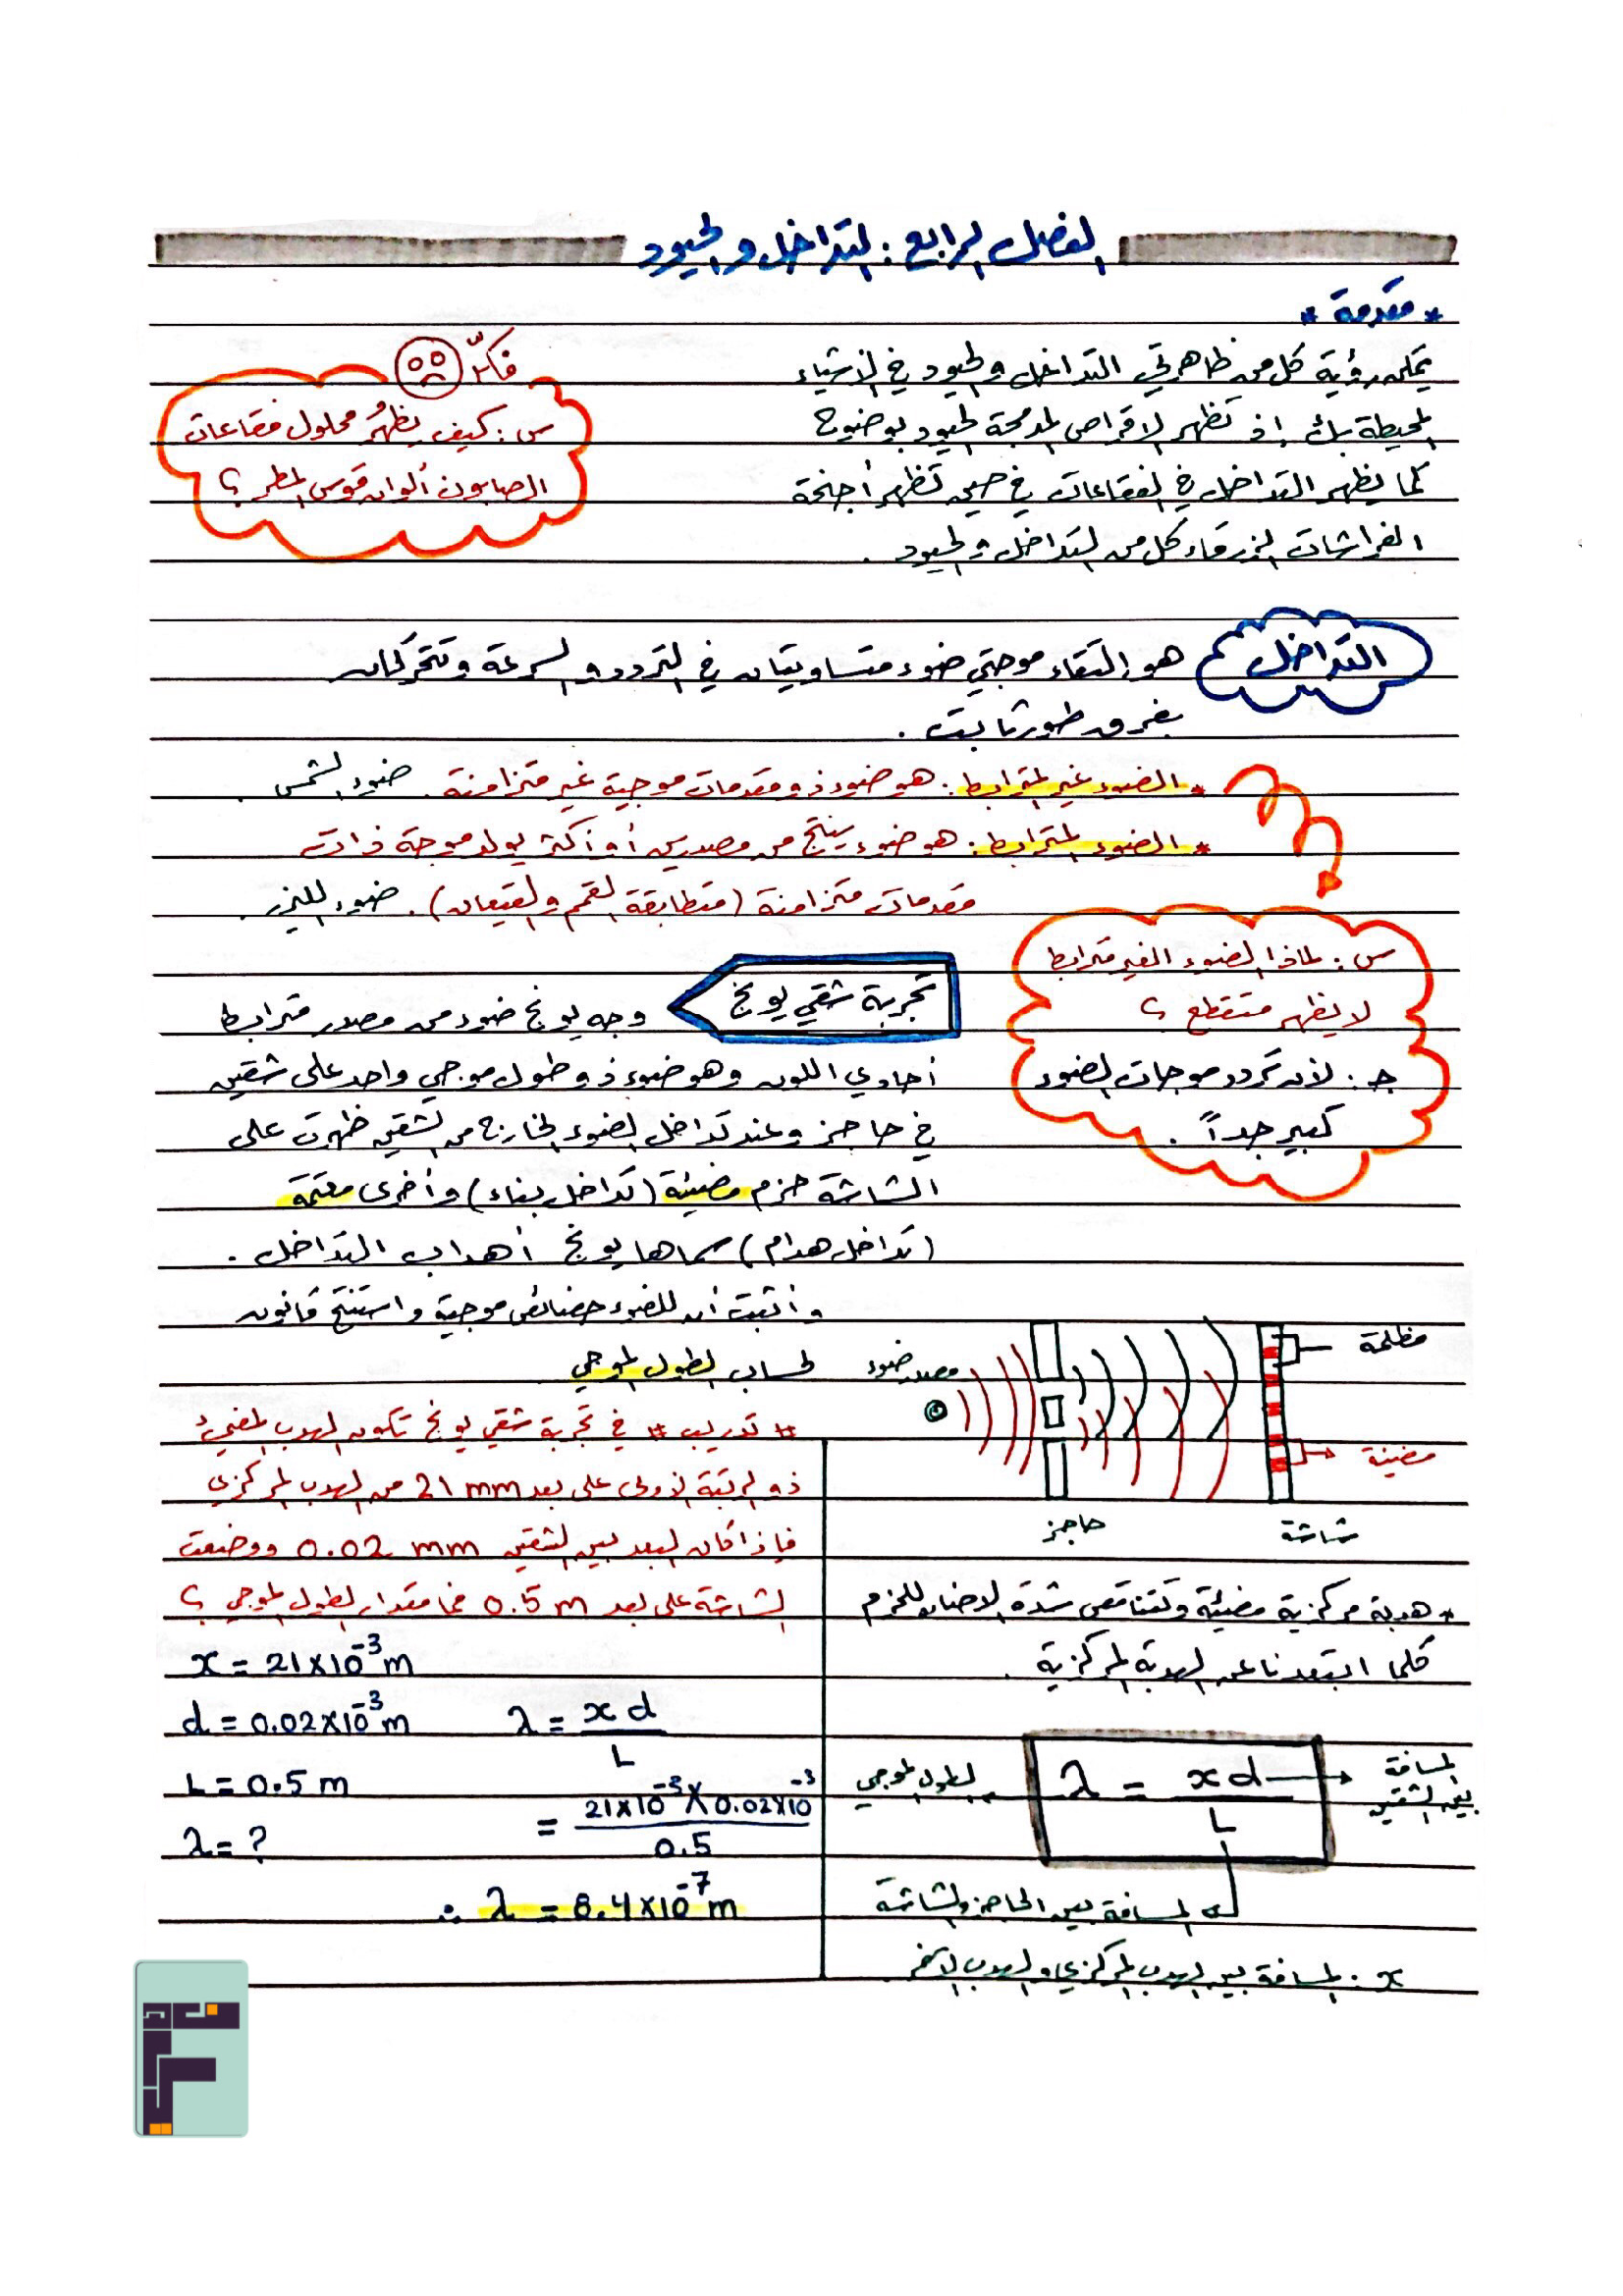 الفصل الرابع : التداخل والحيود
* مقدمة *
يمكن رؤية كل من ظاهرتي التداخل والحيود في الأشياء
المحيطة بك إذ تظهر الأقراص المدمجة الحيود بوضوح
كما يظهر التداخل في الفقاعات في حين تظهر أجنحة
الفراشات الزرقاء كل من التداخل والحيود .
فكّر
س : كيف يظهرُ محلول فقاعات
الصابون ألوان قوس المطر ؟
التداخل
هو إلتقاء موجتي ضوء متساويتان في التردد والسرعة وتتحركان
بفرق طور ثابت .
* الضوء غير المترابط : هو ضوء ذو مقدمات موجية غير متزامنة . ضوء الشمس .
* الضوء المترابط : هو ضوء ينتج من مصدرين أو أكثر يولد موجة ذات
مقدمات متزامنة (متطابقة القمم والقيعان) . ضوء الليزر .
س : لماذا الضوء الغير مترابط
لا يظهر متقطع ؟
جـ : لأن تردد موجات الضوء
كبير جداً .
تجربة شقي يونج
وجه يونج ضوء من مصدر مترابط
أحادي اللون وهو ضوء ذو طول موجي واحد على شقين
في حاجز وعند تداخل الضوء الخارج من الشقين ظهرت على
الشاشة حزم مضيئة (تداخل بناء) وأخرى معتمة
(تداخل هدام) سماها يونج أهداب التداخل .
وأثبت أن للضوء خصائص موجية واستنتج قانون
لحساب الطول الموجي
مصدر ضوء
مظلمة
مضيئة
حاجز
شاشة
* هدبة مركزية مضيئة وتتناقص شدة الإضاءة للحزم
كلما ابتعدنا عن الهدبة المركزية .
الطول الموجي
λ = x d / L
المسافة
بين الشقين
المسافة بين الحاجز والشاشة
x : المسافة بين الهدب المركزي والهدب الآخر
# تدريب # في تجربة شقي يونج تكون الهدب المضيء
ذو الرتبة الأولى على بعد 21 mm من الهدب المركزي
فإذا كان البعد بين الشقين 0.02 mm ووضعت
الشاشة على بعد 0.5 m فما مقدار الطول الموجي ؟
x = 21×10⁻³ m
d = 0.02×10⁻³ m
L = 0.5 m
λ = ?
λ = x d / L
= 21×10⁻³ × 0.02×10⁻³ / 0.5
∴ λ = 8.4×10⁻⁷ m